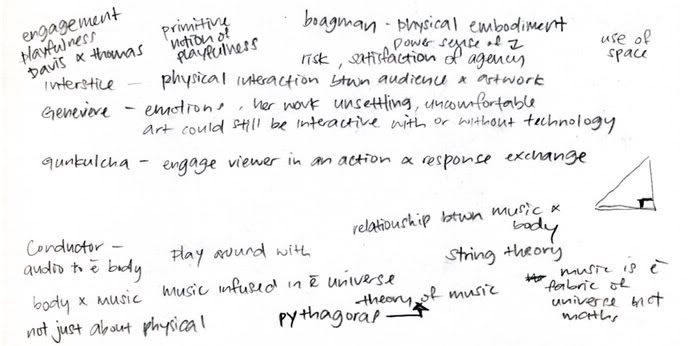 engagement
playfulness
Davis & thomas
primitive
notion of
playfulness
boagman - physical embodiment
power sense of I
risk, satisfaction of agency
use of
space
Interstice - physical interaction btwn audience & artwork
Genevieve - emotions, her work unsettling, uncomfortable
art could still be interactive with or without technology
qunkulcha - engage viewer in an action & response exchange
relationship btwn music &
body
Conductor -
audio to ē body
play around with
string theory
body & music
music infused in ē universe
theory of music
music is ē
fabric of
universe not
maths
not just about physical
pythagoras